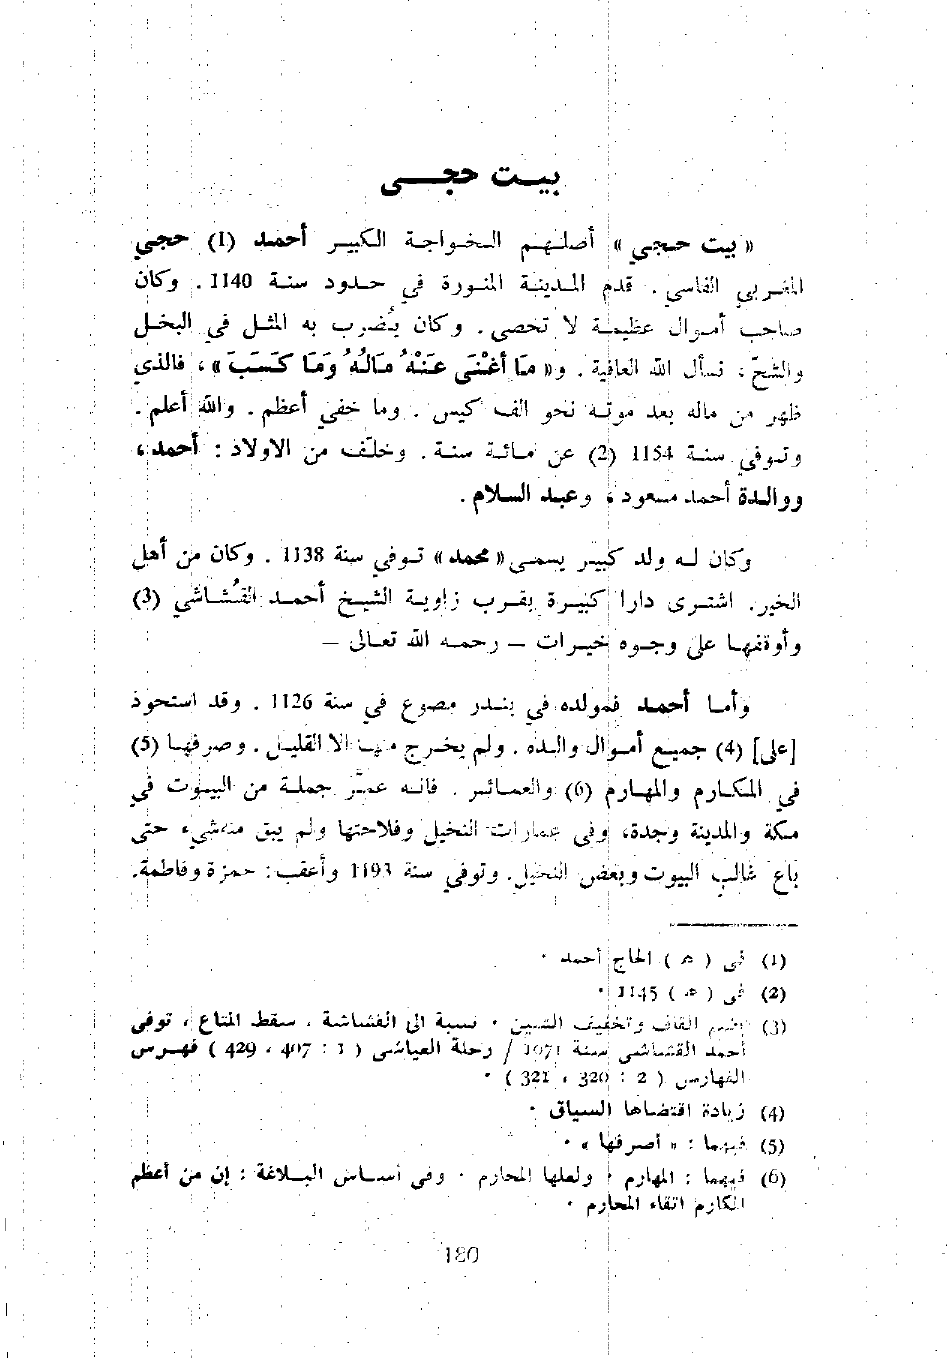 بيت حجي
« بيت حجي » أصلهم الخواجة الكبير أحمد (1) حجي
المغربي الفاسي . قدم المدينة المنورة في حدود سنة 1140 . وكان
صاحب أموال عظيمة لا تحصى . وكان يُضرب به المثل في البخل
والشحّ ، نسأل الله العافية . و« مَا أغْنَى عَنْهُ مَالُهُ وَمَا كَسَبَ » ، فالذي
ظهر من ماله بعد موته نحو الف كيس . وما خفي أعظم . والله أعلم .
وتوفي سنة 1154 (2) عن مائة سنة . وخلّف من الاولاد : أحمد ،
ووالدة أحمد مسعود ، وعبد السلام .
وكان له ولد كبير يسمى « محمد » توفي سنة 1138 . وكان من أهل
الخير . اشترى دارا كبيرة بقرب زاوية الشيخ أحمد القُشاشي (3)
وأوقفها على وجوه خيرات – رحمه الله تعالى –
وأما أحمد فمولده في بندر مصوع في سنة 1126 . وقد استحوذ
[على] (4) جميع أموال والده . ولم يخرج منها الا القليل . وصرفها (5)
في المكارم والمهارم (6) والعمائر . فانه عمّر جملة من البيوت في
مكة والمدينة وجدة، وفى عمارات النخيل وفلاحتها ولم يبق منه شيء حتى
باع غالب البيوت وبعض النخيل . وتوفي سنة 1193 وأعقب : حمزة وفاطمة .
(1) فى ( ه ) الحاج أحمد ٠
(2) فى ( ه ) 1145 ٠
(3) بضم القاف وتخفيف الشين ٠ نسبة الى القشاشة ، سقط المتاع ، توفى
أحمد القشاشى سنة 1071 / رحلة العياشى ( 1 : 407 ، 429 ) فهرس
الفهارس ( 2 : 320 ، 321 ) ٠
(4) زيادة اقتضاها السياق ٠
(5) فيهما : « أصرفها » ٠
(6) فيهما : المهارم ؛ ولعلها المحارم ٠ وفى أساس البلاغة : إن من أعظم
المكارم اتقاء المحارم ٠
180